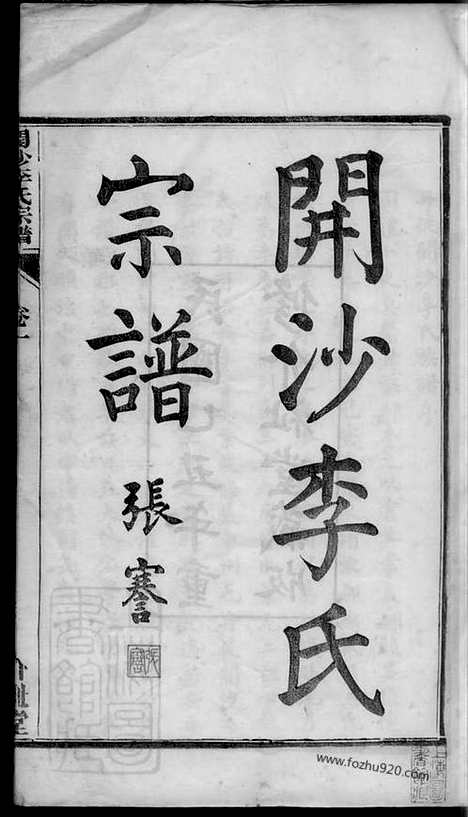 開沙李氏
宗譜
張謇
開沙李氏宗譜
卷一
www.fozhu920.com